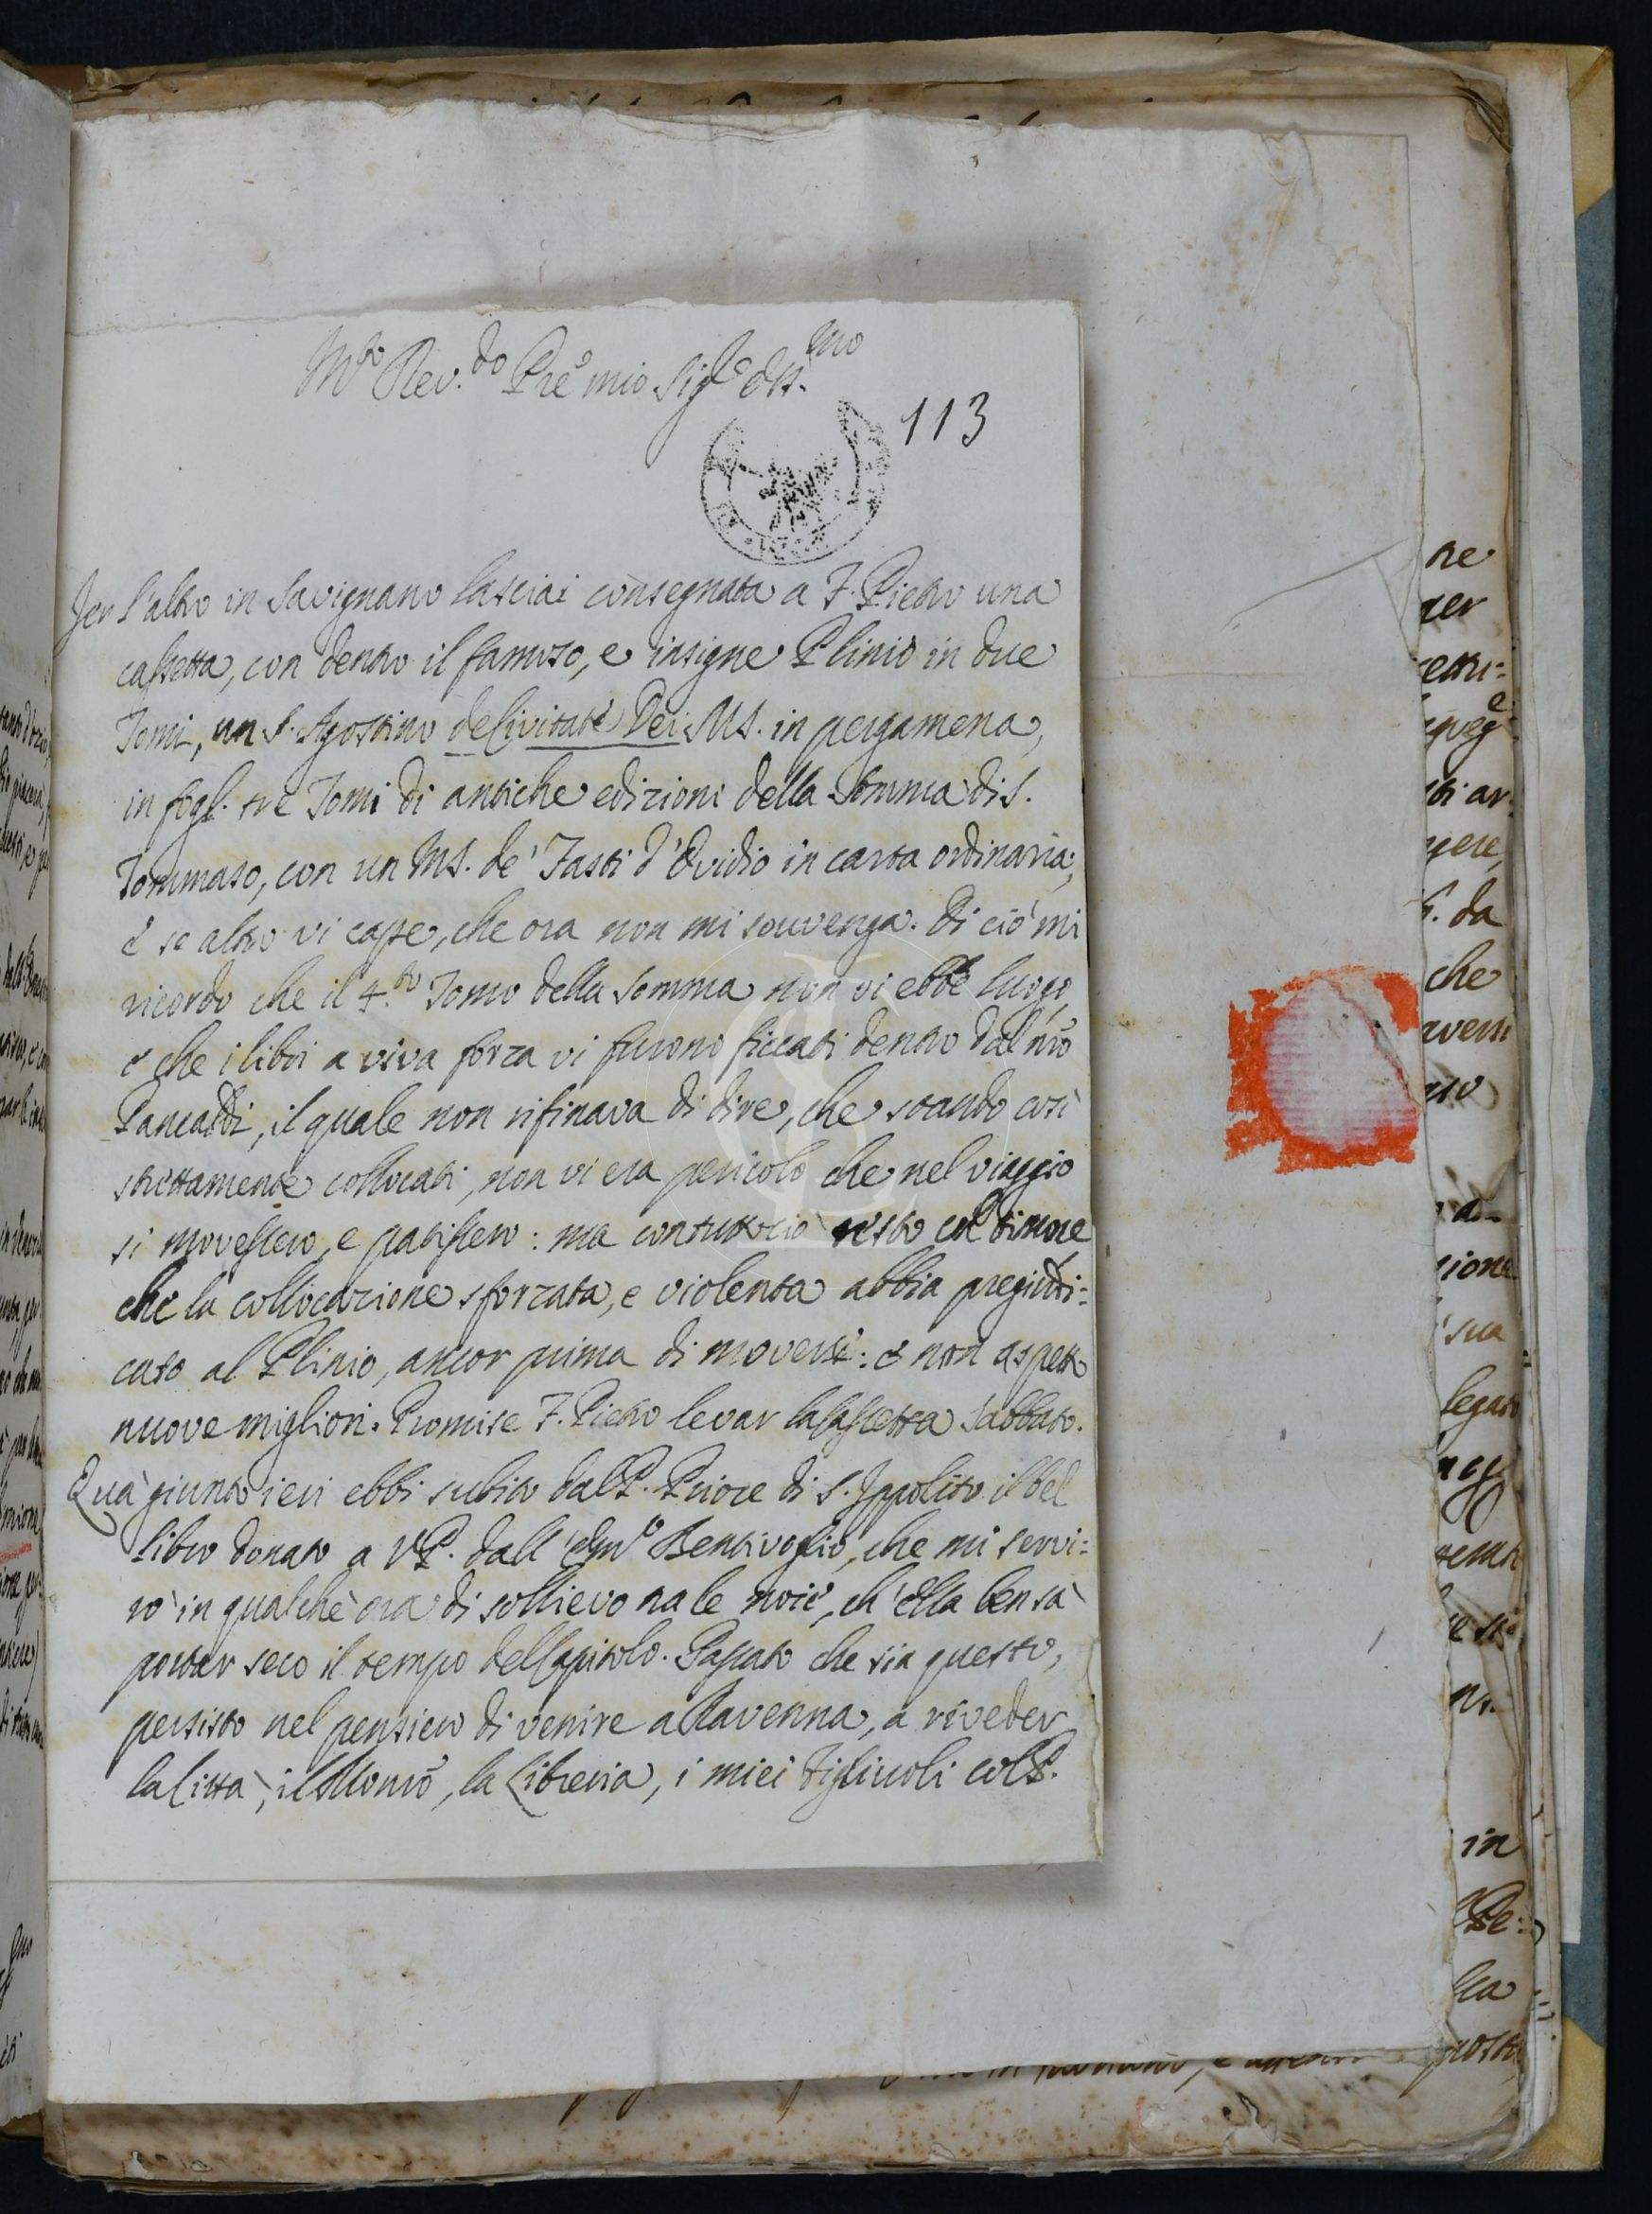 M.to Rev.do P̃re mio Sig.re Oss.mo
113
Jer l'altro in Savignano lasciai consegnata a F. Pietro una
cassetta, con dentro il famoso, e insigne Plinio in due
Tomi, un S. Agostino de Civitate Dei MS. in pergamena,
in fogl. tre Tomi di antiche edizioni della Somma di S.
Tommaso, con un MS. de' Fasti d'Ovidio in carta ordinaria;
e se altro vi capse, che ora non mi souvenga. Di ciò mi
ricordo che il 4.to Tomo della Somma non vi ebbe luogo,
e che i libri a viva forza vi furono ficcati dentro dal nr̃o
Pancaldi, il quale non rifinava di dire, che stando così
strettamente collocati, non vi era pericolo che nel viaggio
si movessero, e patissero: ma contuttociò resto col timore
che la collocazione sforzata, e violenta abbia pregiudi:
cato al Plinio, ancor prima di moversi: e non aspetto
nuove migliori. Promise F. Pietro levar la Cassetta Sabbato.
Quà giunto ieri ebbi subito dal P. Priore di S. Ippolito il bel
libro donato a VP. dall' Emo Bentivoglio, che mi servi:
rò in qualche ora di sollievo tra le noie, ch'ella ben sà
portar seco il tempo del Capitolo. Passato che sia questo,
persisto nel pensiero di venire a Ravenna, a riveder
la Città, il Monro, la Libreria, i miei Figliuoli col P.